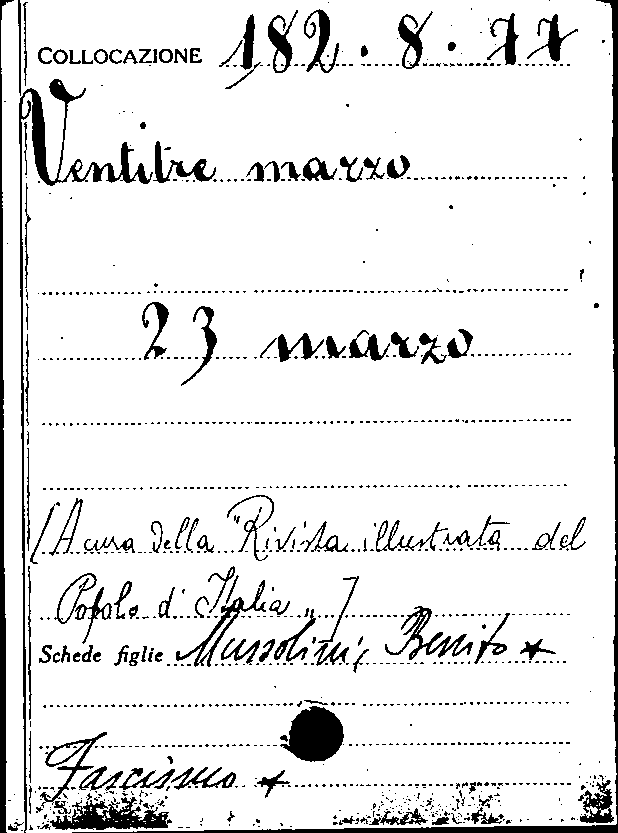 COLLOCAZIONE 182.8.77
Ventitre marzo
23 marzo
[A cura della "Rivista illustrata del
Popolo d'Italia"]
Schede figlie Mussolini, Benito +
Fascismo +